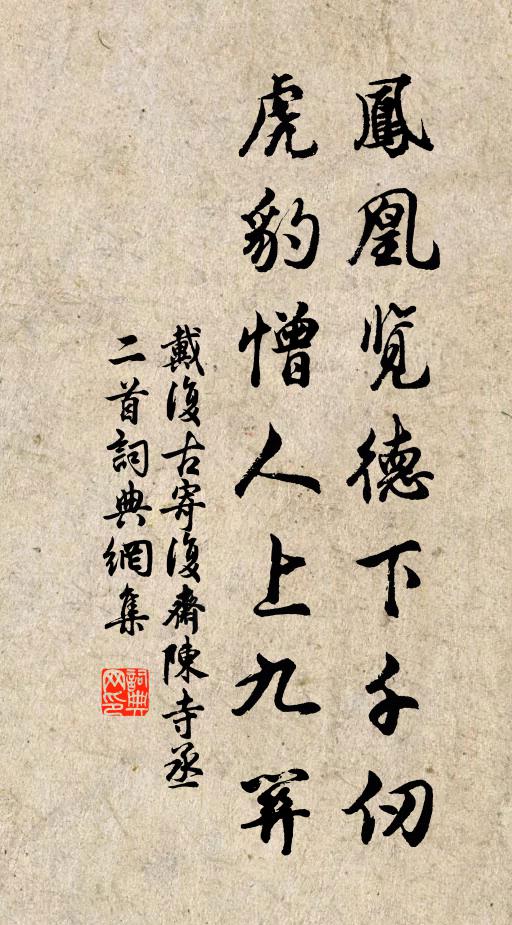 鳳凰览德下千仞
虎豹憎人上九關
戴復古寄復齋陳寺丞
二首詞典網集
詞典网印